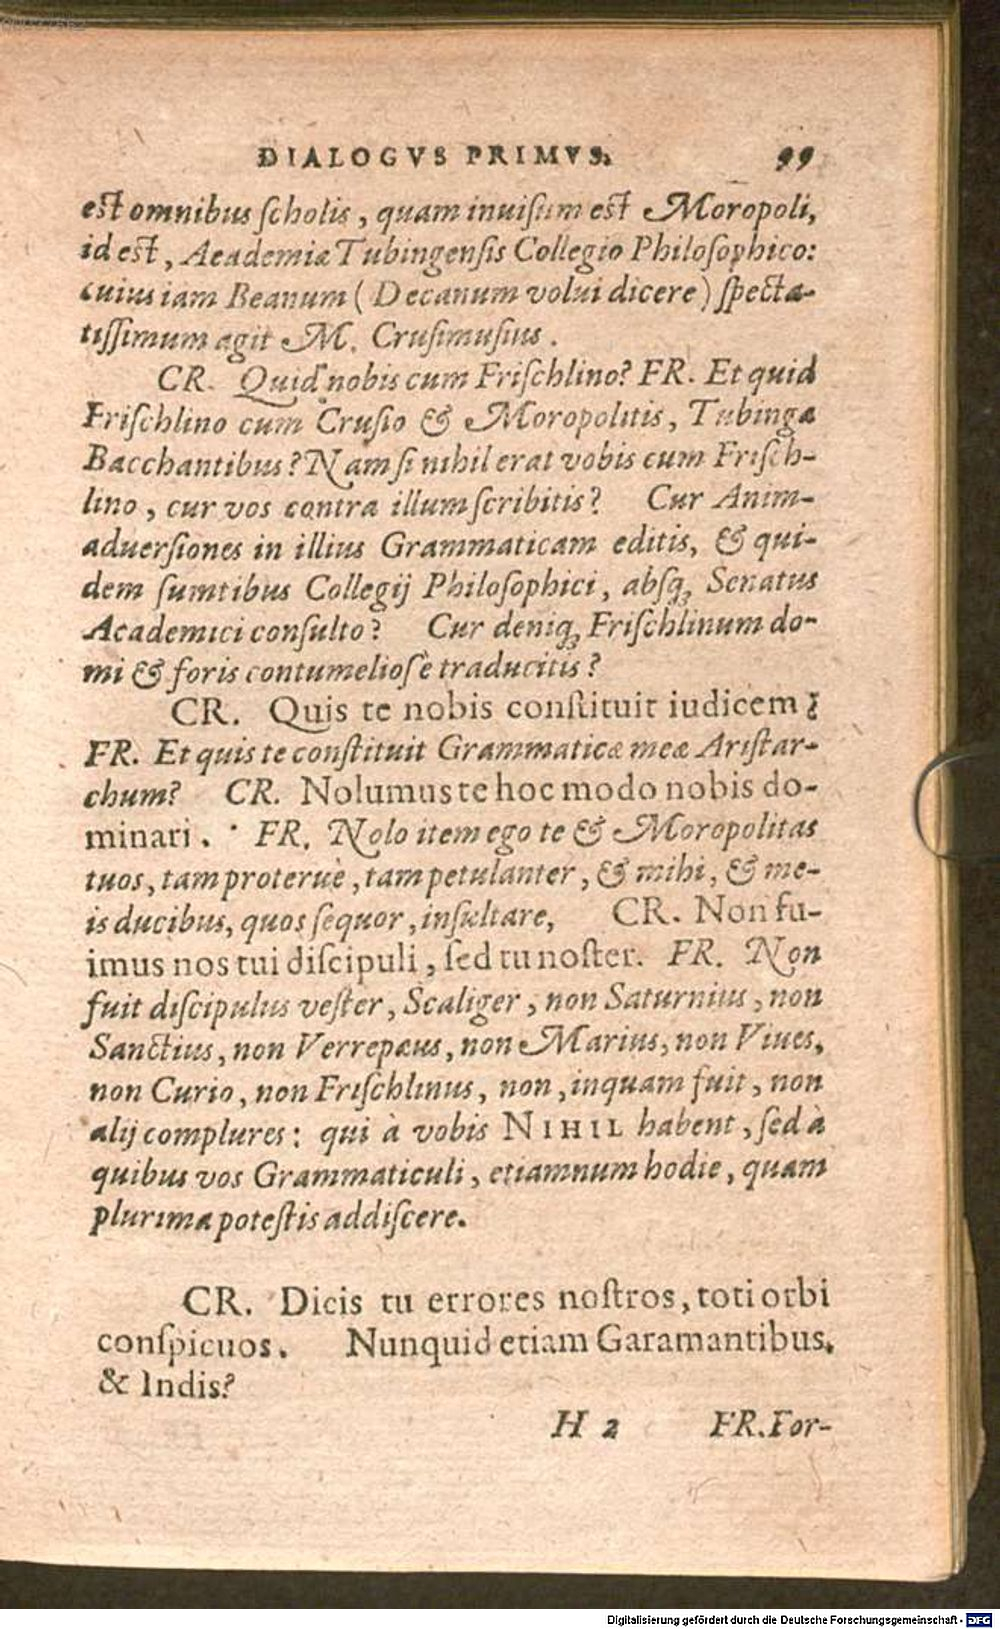 DIALOGVS PRIMVS. 99
est omnibus ſcholis, quam inuiſum est Moropoli,
id est, Academiæ Tubingenſis Collegio Philoſophico:
cuius iam Beanum (Decanum volui dicere) ſpecta-
tiſſimum agit M. Cruſimuſius.
CR. Quid nobis cum Friſchlino? FR. Et quid
Friſchlino cum Cruſio & Moropolitis, Tubingæ
Bacchantibus? Nam ſi nihil erat vobis cum Friſch-
lino, cur vos contra illum ſcribitis? Cur Anim-
aduerſiones in illius Grammaticam editis, & qui-
dem ſumtibus Collegij Philoſophici, absq; Senatus
Academici conſulto? Cur deniq; Friſchlinum do-
mi & foris contumelioſè traducitis?
CR. Quis te nobis conſtituit iudicem?
FR. Et quis te conſtituit Grammaticæ meæ Ariſtar-
chum? CR. Nolumus te hoc modo nobis do-
minari. FR. Nolo item ego te & Moropolitas
tuos, tam proteruè, tam petulanter, & mihi, & me-
is ducibus, quos ſequor, inſultare, CR. Non fu-
imus nos tui diſcipuli, ſed tu noſter. FR. Non
fuit diſcipulus veſter, Scaliger, non Saturnius, non
Sanctius, non Verrepæus, non Marius, non Viues,
non Curio, non Friſchlinus, non, inquam fuit, non
alij complures: qui à vobis NIHIL habent, ſed à
quibus vos Grammaticuli, etiamnum hodie, quam
plurima poteſtis addiſcere.
CR. Dicis tu errores noſtros, toti orbi
conſpicuos. Nunquid etiam Garamantibus,
& Indis?
H 2 FR. For-
Digitalisierung gefördert durch die Deutsche Forschungsgemeinschaft - DFG